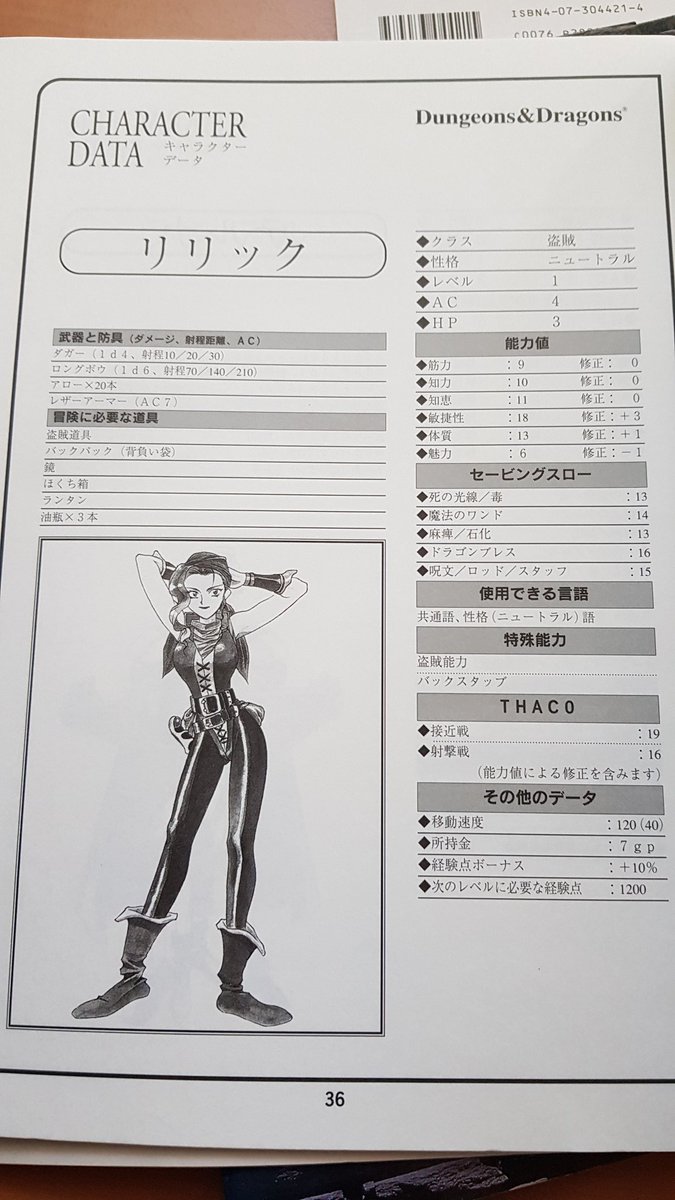 ISBN4-07-304421-4
CHARACTER
DATA
キャラクター
データ
Dungeons&Dragons®
リリック
武器と防具(ダメージ、射程距離、AC)
ダガー(1d4、射程10/20/30)
ロングボウ(1d6、射程70/140/210)
アロー×20本
レザーアーマー(AC7)
冒険に必要な道具
盗賊道具
バックパック(背負い袋)
鏡
ほくち箱
ランタン
油瓶×3本
◆クラス 盗賊
◆性格 ニュートラル
◆レベル 1
◆AC 4
◆HP 3
能力値
◆筋力 :9 修正: 0
◆知力 :10 修正: 0
◆知恵 :11 修正: 0
◆敏捷性 :18 修正:+3
◆体質 :13 修正:+1
◆魅力 :6 修正:-1
セービングスロー
◆死の光線/毒 :13
◆魔法のワンド :14
◆麻痺/石化 :13
◆ドラゴンブレス :16
◆呪文/ロッド/スタッフ :15
使用できる言語
共通語、性格(ニュートラル)語
特殊能力
盗賊能力
バックスタップ
THAC0
◆接近戦 :19
◆射撃戦 :16
(能力値による修正を含みます)
その他のデータ
◆移動速度 :120(40)
◆所持金 :7gp
◆経験点ボーナス :+10%
◆次のレベルに必要な経験点 :1200
36